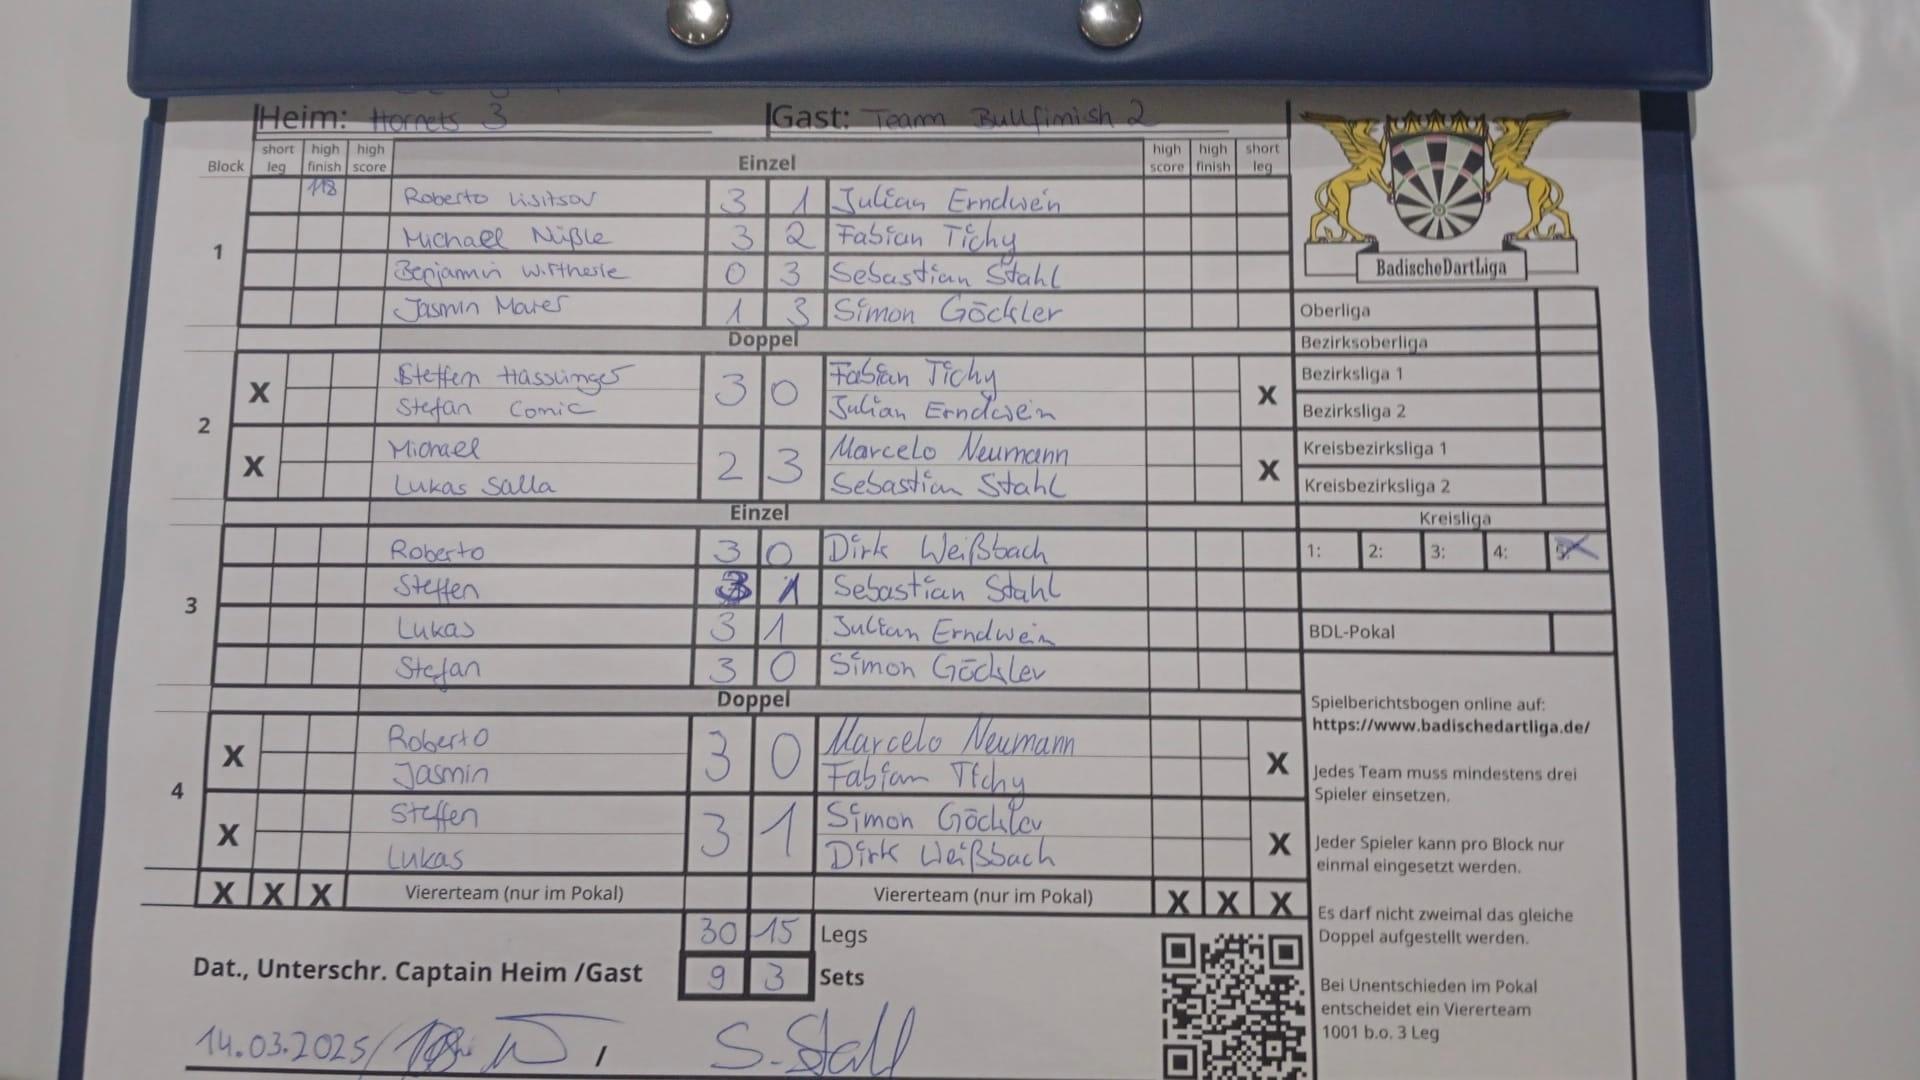 Heim: Hornets 3 Gast: Team Bullfimish 2
Block short leg high finish high score Einzel high score high finish short leg
1
118 Roberto Lisitsov 3 1 Julian Erndwein
Michael Nüßle 3 2 Fabian Tichy
Benjamin 0 3 Sebastian Stahl
Jasmin 1 3 Simon Göckler
Doppel
2
X Steffen Hasslinger 3 0 Fabian Tichy X
Stefan Comic Julian Erndwein
X Michael 2 3 Marcelo Neumann X
Lukas Salla Sebastian Stahl
Einzel
3
Roberto 3 0 Dirk Weißbach
Steffen 3 1 Sebastian Stahl
Lukas 3 1 Julian Erndwein
Stefan 3 0 Simon Göckler
Doppel
4
X Roberto 3 0 Marcelo Neumann X
Jasmin Fabian Tichy
X Steffen 3 1 Simon Göckler X
Lukas Dirk Weißbach
X X X Viererteam (nur im Pokal) Viererteam (nur im Pokal) X X X
30 15 Legs
Dat., Unterschr. Captain Heim /Gast 9 3 Sets
14.03.2025/ / S. Stahl
BadischeDartLiga
Oberliga
Bezirksoberliga
Bezirksliga 1
Bezirksliga 2
Kreisbezirksliga 1
Kreisbezirksliga 2
Kreisliga
1: 2: 3: 4: 5:
BDL-Pokal
Spielberichtsbogen online auf:
https://www.badischedartliga.de/
Jedes Team muss mindestens drei
Spieler einsetzen.
Jeder Spieler kann pro Block nur
einmal eingesetzt werden.
Es darf nicht zweimal das gleiche
Doppel aufgestellt werden.
Bei Unentschieden im Pokal
entscheidet ein Viererteam
1001 b.o. 3 Leg